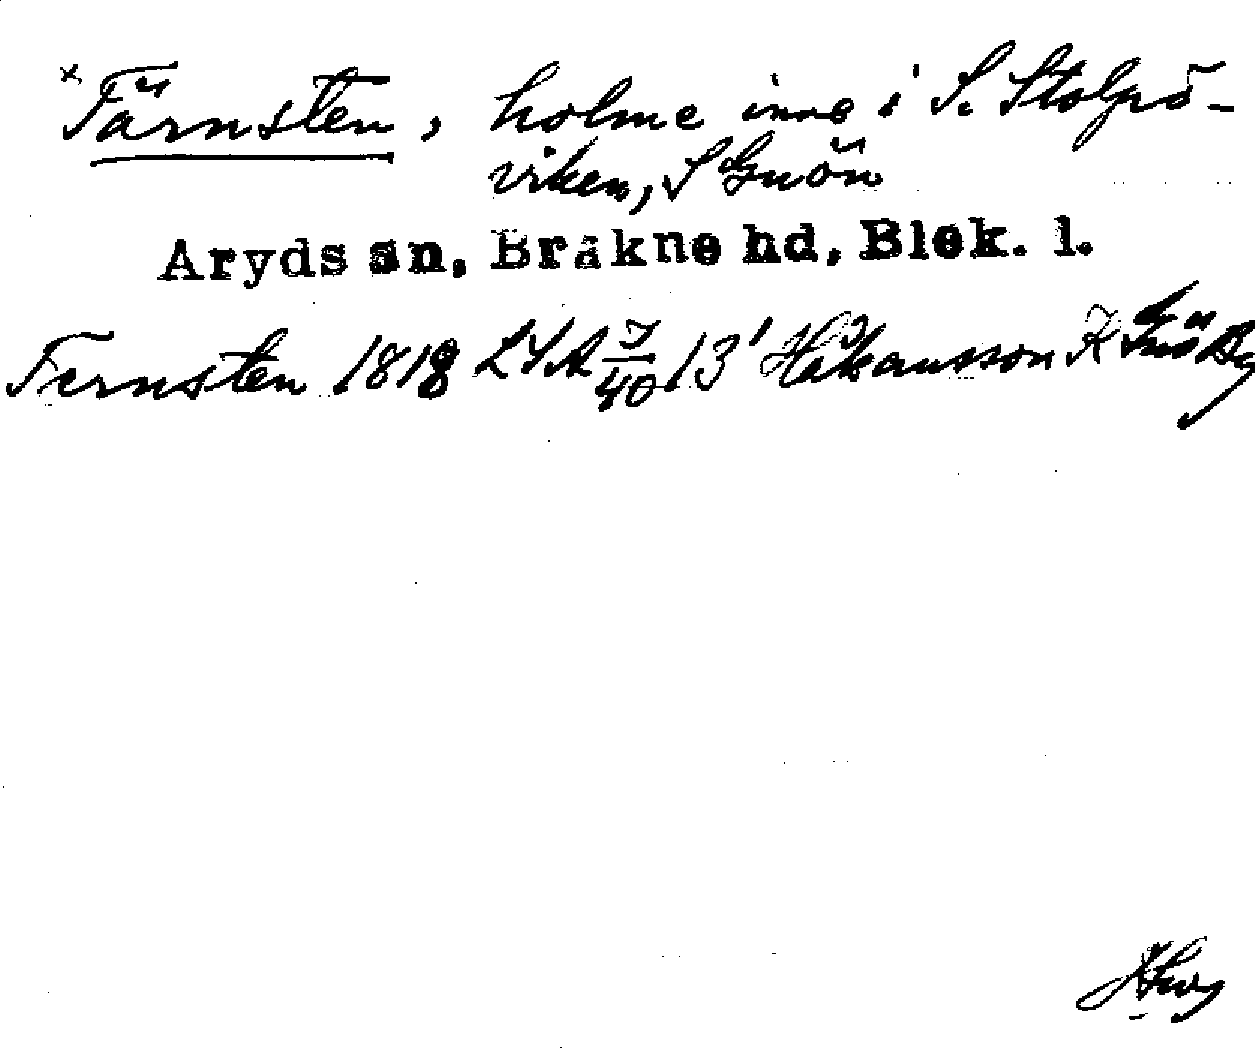 x Tärnsten, holme inne i S. Stolpö-
viken, S Gnön
Aryds sn, Bräkne hd, Blek. l.
Fernsten 1818 LSA 7/40 13' Håkansson K